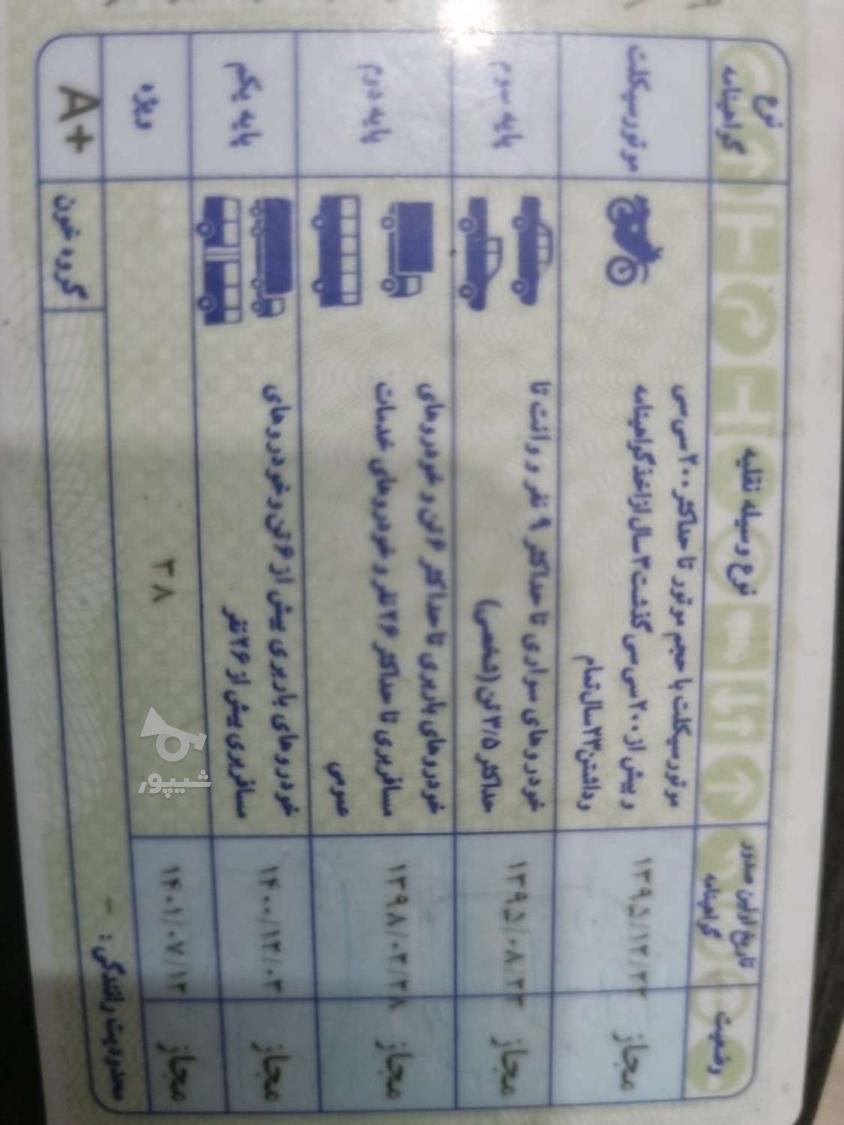 نوع گواهینامه
نوع وسیله نقلیه
تاریخ اولین صدور گواهینامه
وضعیت
موتورسیکلت
موتورسیکلت با حجم موتور تا حداکثر ۲۰۰ سی سی
و بیش از ۲۰۰ سی سی گذشت ۳ سال از اخذ گواهینامه
و داشتن ۲۳ سال تمام
۱۳۹۵/۱۲/۲۲
مجاز
پایه سوم
خودروهای سواری تا حداکثر ۹ نفر و وانت تا
حداکثر ۳/۵ تن (شخصی)
۱۳۹۵/۰۸/۲۳
مجاز
پایه دوم
خودروهای باربری تا حداکثر ۶ تن و خودروهای
مسافربری تا حداکثر ۲۶ نفر و خودروهای خدمات
عمومی
۱۳۹۸/۰۲/۲۸
مجاز
پایه یکم
خودروهای باربری بیش از ۶ تن و خودروهای
مسافربری بیش از ۲۶ نفر
۱۴۰۰/۱۲/۰۳
مجاز
ویژه
۳۸
۱۴۰۱/۰۷/۱۲
مجاز
A+
گروه خون
محدودیت رانندگی : -
شیپور